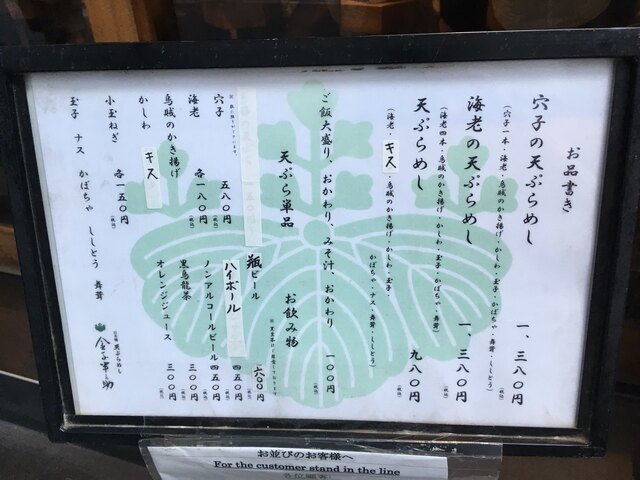 お品書き
穴子の天ぷらめし 一、三八〇円(税込)
(穴子一本・海老・烏賊のかき揚げ・かしわ・玉子・かぼちゃ・舞茸・ししとう)
海老の天ぷらめし 一、三八〇円(税込)
(海老四本・烏賊のかき揚げ・かしわ・玉子・かぼちゃ・舞茸)
天ぷらめし 九八〇円(税込)
(海老・キス・烏賊のかき揚げ・かしわ・玉子・かぼちゃ・ナス・舞茸・ししとう)
ご飯大盛り、おかわり、みそ汁、おかわり 一〇〇円(税込)
天ぷら単品
穴子 五八〇円(税込)
海老
烏賊のかき揚げ 各一八〇円(税込)
かしわ
キス 各一五〇円(税込)
小玉ねぎ
玉子 ナス かぼちゃ ししとう 舞茸 各一五〇円(税込)
お飲み物
瓶ビール 六〇〇円
ハイボール 四五〇円
ノンアルコールビール 四五〇円
黒烏龍茶 三〇〇円
オレンジジュース 三〇〇円
日本橋 天ぷらめし
金子半之助
お並びのお客様へ
For the customer stand in the line
各位顧客